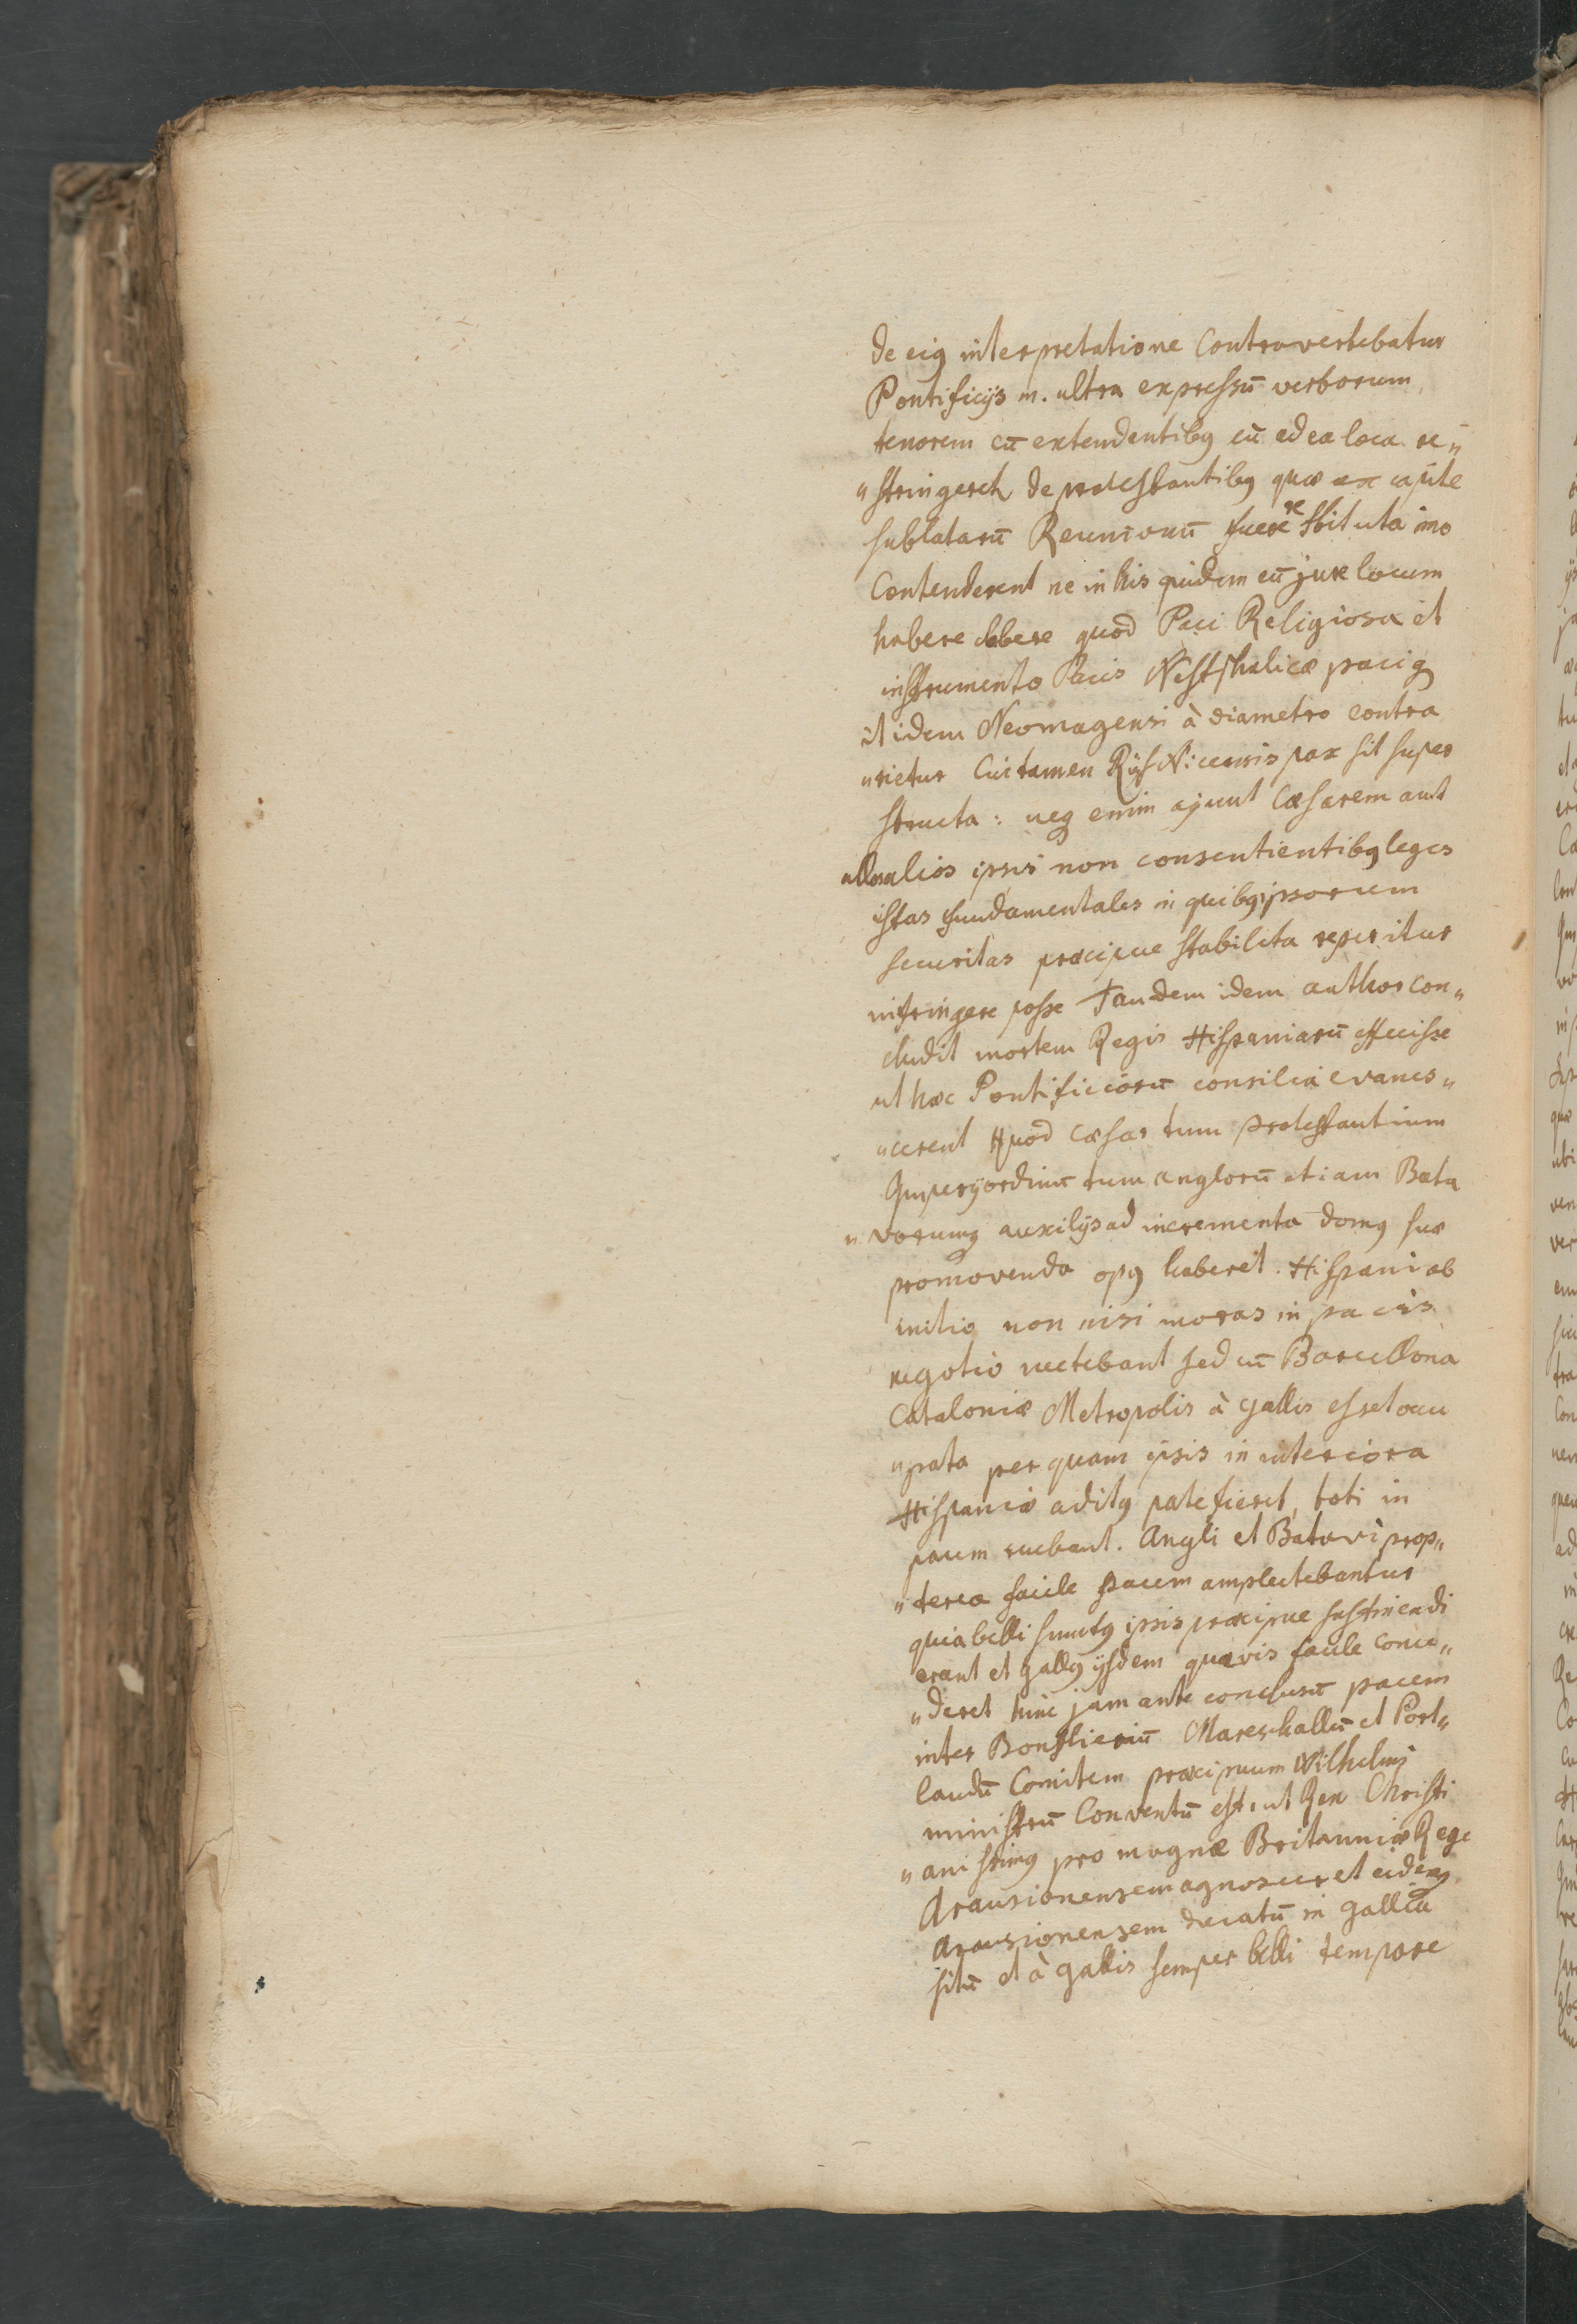 de eiꝰ interpretatione Controvertebatur
Pontificijs m. ultra expressū verborum
tenorem eū extendentibꝰ eū ad ea loca re„
„stringeret de protestantibꝰ quæ ex capite
sublatarū Reunionū fuere restituta imo
Contenderent ne in his quidem eū jure locum
habere debere quod Paci Religiosæ et
instrumento Pacis Westphalicæ paciꝗ
itidem Neomagensi à diametro contra
„rietur Cui tamen RijsWicensis pax sit super
structa: neꝗ enim ajunt Cæsarem aut
alios ipsis non consentientibꝰ leges
istas fundamentales in quibꝰ ipsorum
securitas præcipue stabilita reperitur
infringere posse Tandem idem author con„
cludit mortem Regis Hispaniarū effecisse
ut hæc Pontificiorū consilia evanes„
„cerent Quod Cæsar tum protestantium
Imperij ordinū tum anglorū etiam Bata
„vorumꝗ auxilijs ad incrementa domꝰ suæ
promovenda opꝰ haberet. Hispani ab
initio non nisi moras in pacis
negotio nectebant sed cū Barcellona
Cataloniæ Metropolis à gallis esset occu
„pata per quam ipsis in interiora
Hispaniæ aditꝰ patefieret, toti in
pacem ruebant. Angli et Batavi prop„
„terea facile pacem amplectebantur
quia belli sumtꝰ ipsis præcipue sustinendi
erant et gallꝰ ijsdem quævis facile conce„
„deret hinc jam ante conclusū pacem
inter Bonflieriū Mareschallū et Port„
landū Comitem præcipuum Wilhelmi
ministrū Conventū est, ut Rex Christi
„anissimꝰ pro magnæ Britanniæ Rege
Arausionensem agnosceret eidemꝗ
Arausionensem ducatū in gallia
sitū et à gallis semper belli tempore